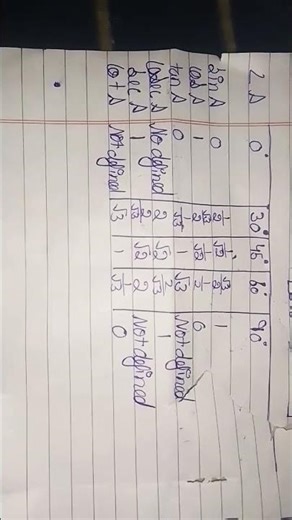 ∠A 0° 30° 45° 60° 90°
Sin A 0 1/2 1/√2 √3/2 1
Cos A 1 √3/2 1/√2 1/2 0
tan A 0 1/√3 1 √3 Not defined
Cosec A Not defined 2 √2 2/√3 1
Sec A 1 2/√3 √2 2 Not defined
Cot A Not defined √3 1 1/√3 0